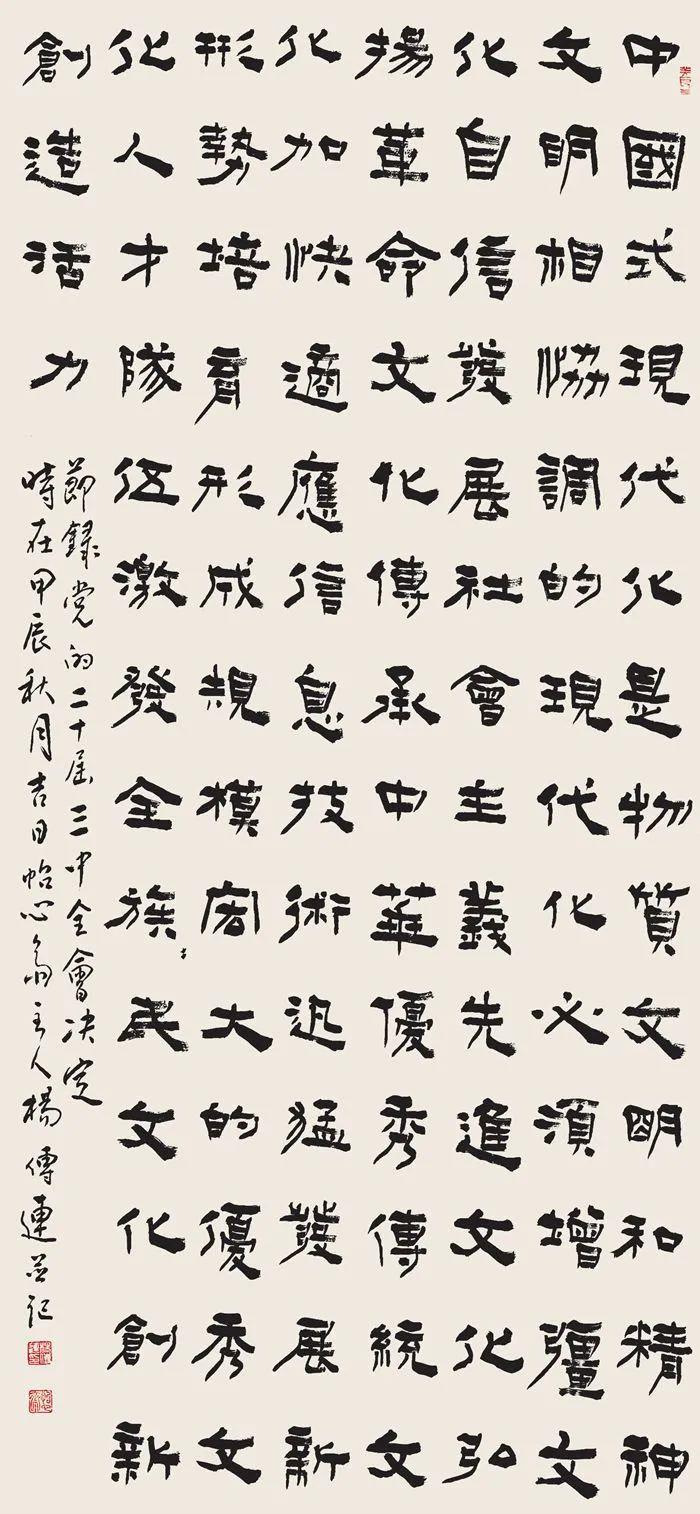 中國式現代化是物質文明和精神
文明相協調的現代化必須增彊文
化自信發展社會主義先進文化弘
揚革命文化傳承中華優秀傳統文
化加快適應信息技術迅猛發展新
形勢培育形成規模宏大的優秀文
化人才隊伍激發全族民文化創新
創造活力
節錄党的二十届三中全會决定
時在甲辰秋月吉日怡心齋主人楊傳連並記